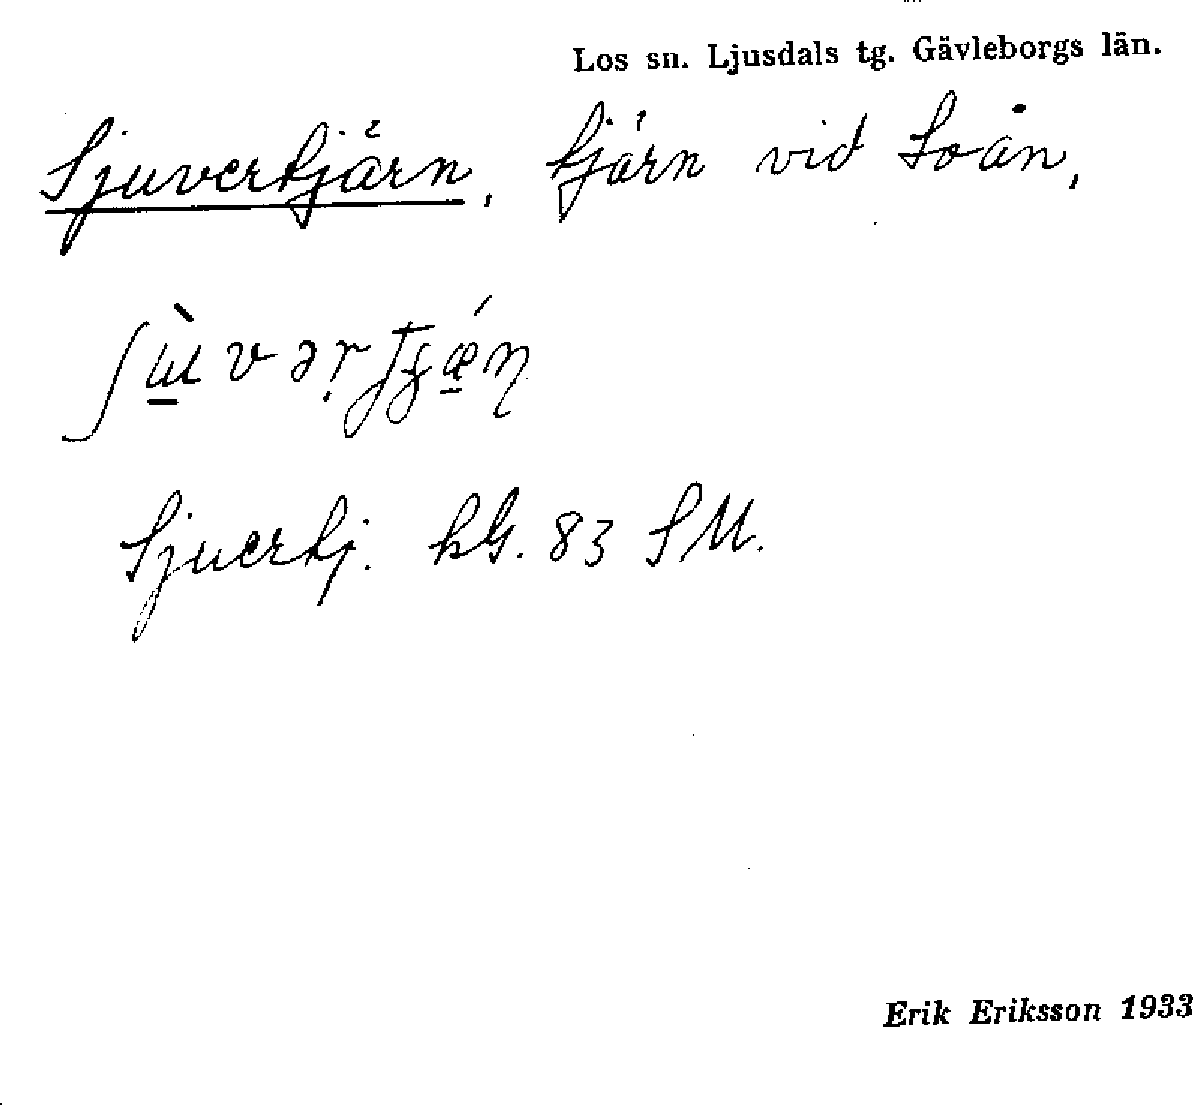 Los sn. Ljusdals tg. Gävleborgs län.
Sjuvertjärn, tjärn vid Loån,
Sjuertj. hG. 83 SM.
Erik Eriksson 1933